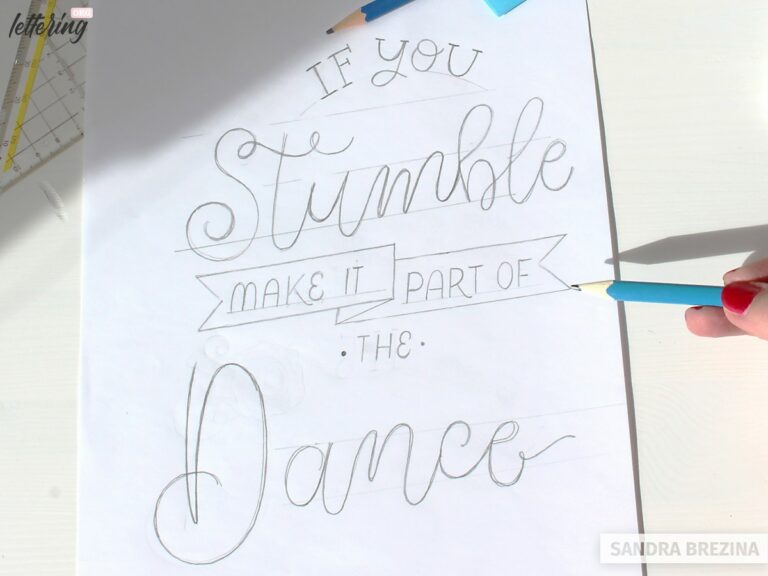 lettering
.ORG
IF YOU
Stumble
MAKE IT PART OF
· THE ·
Dance
SANDRA BREZINA